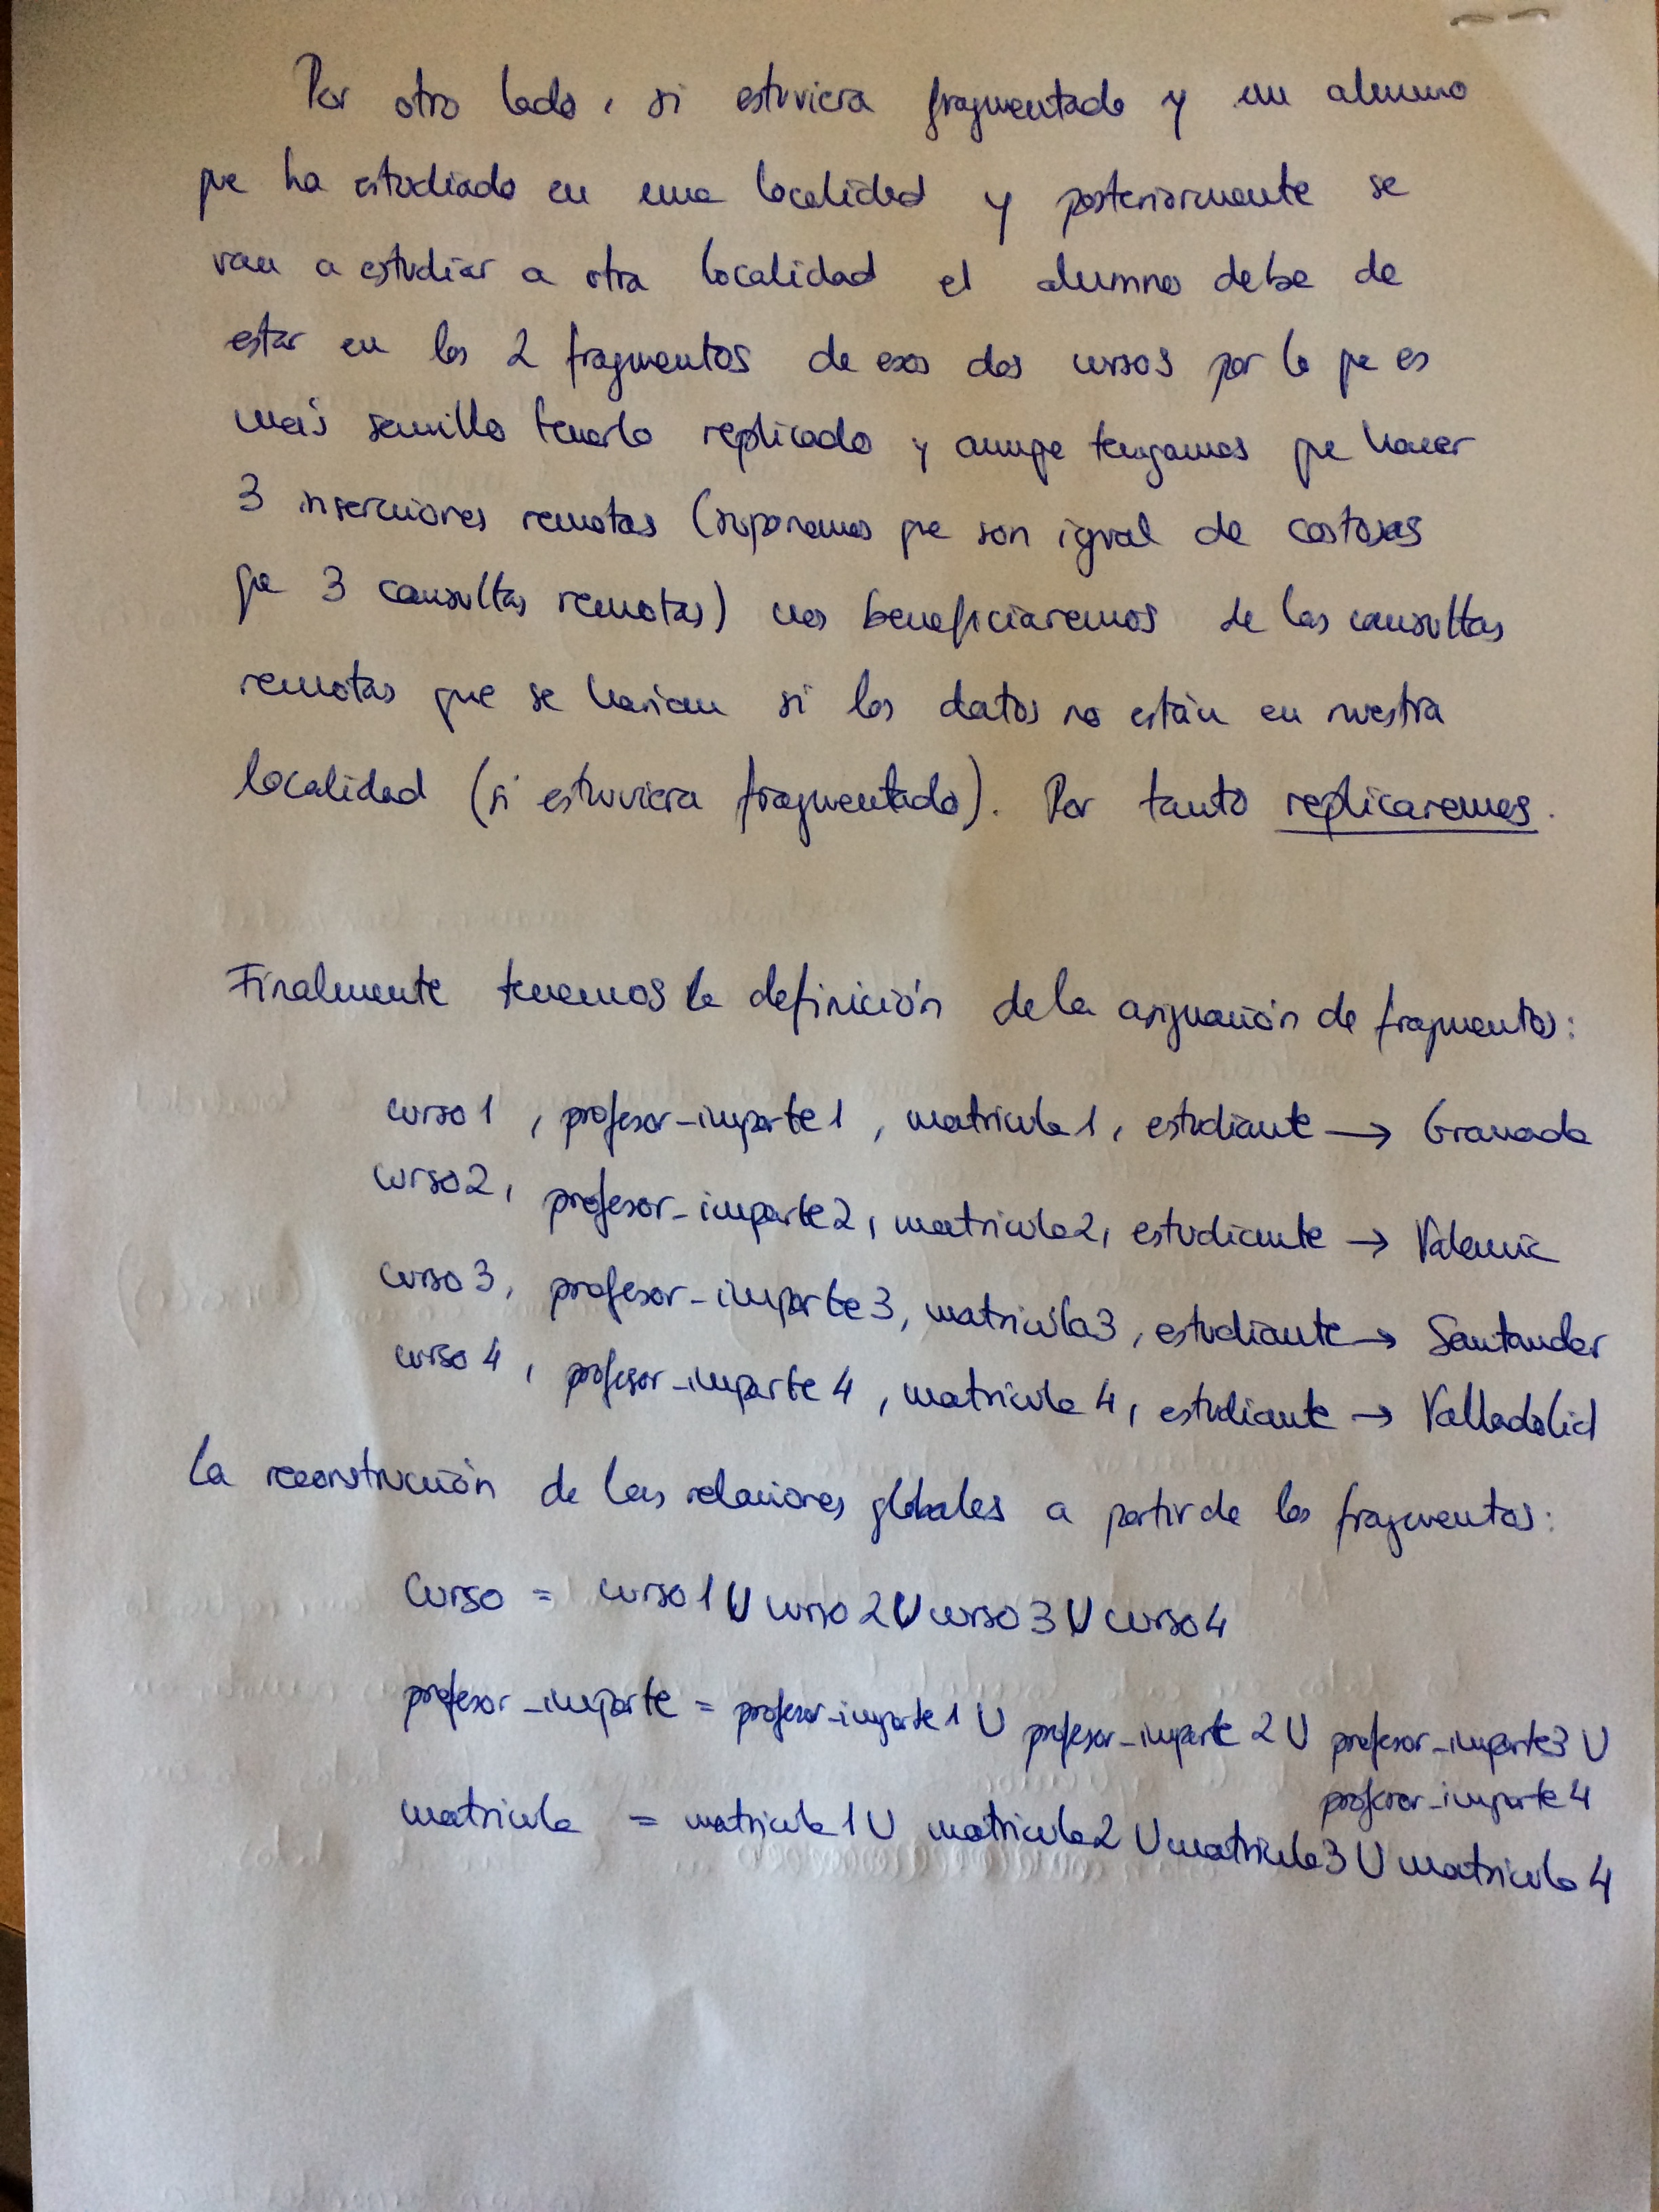 Por otro lado, si estuviera fragmentado y un alumno
que ha estudiado en una localidad y posteriormente se
van a estudiar a otra localidad el alumno debe de
estar en los 2 fragmentos de esos dos cursos por lo que es
más sencillo tenerlo replicado y aunque tengamos que hacer
3 inserciones remotas (suponemos que son igual de costosas
que 3 consultas remotas) nos beneficiaremos de las consultas
remotas que se harían si los datos no están en nuestra
localidad (si estuviera fragmentado). Por tanto replicaremos.
Finalmente tenemos la definición de la asignación de fragmentos:
curso1, profesor-imparte1, matricula1, estudiante → Granada
curso2, profesor-imparte2, matricula2, estudiante → Valencia
curso3, profesor-imparte3, matricula3, estudiante → Santander
curso4, profesor-imparte4, matricula4, estudiante → Valladolid
La reconstrucción de las relaciones globales a partir de los fragmentos:
Curso = curso1 U curso2 U curso3 U curso4
profesor-imparte = profesor-imparte1 U profesor-imparte2 U profesor-imparte3 U
profesor-imparte4
matricula = matricula1 U matricula2 U matricula3 U matricula4